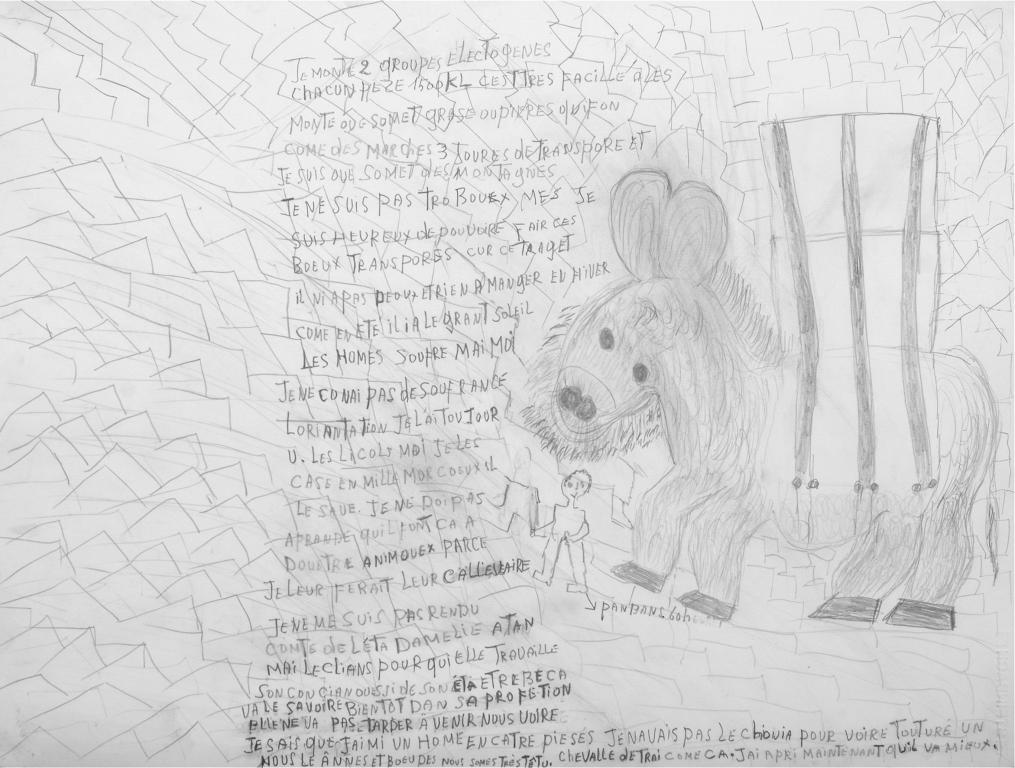 JE MONTE 2 GROUPES ELECTOGENES
CHACUN PEZE 1500KL CEST TRES FACILLE A LES
MONTE OUE SOMET GRASE OUPIERES QUIFON
COME DES MARCHES 3 JOURES DE TRANSPORE ET
JE SUIS OUE SOMET DES MONTAGNES
JE NE SUIS PAS TRO BOUEX MES JE
SUIS HEUREUX DE POUVOIRE FAIR CES
BOEUX TRANSPORES CUR CE TRAGET
IL NI A PAS PEOUX ET RIEN A MANGER EN HIVER
COME EN ETE IL I A LE GRANT SOLEIL
LES HOMES SOUFRE MAI MOI
JE NE CONAI PAS DE SOUFRANCE
LORIANTATION JE LAI TOUJOUR
U. LES LICOLS MOI JE LES
CASE EN MILLE MORCOEUX IL
LE SAVE. JE NE DOI PAS
APRANDE QUIL FONT CA A
DOUTRE ANIMOUEX PARCE
JE LEUR FERAIT LEUR CALLEVAIRE
JE NE ME SUIS PAS RENDU
CONTE DE LETA DAMELIE ATAN
MAI LECLIANS POUR QUI ELLE TRAVAILLE
SON CONCIAN OUSSI DE SON ETA ET REBECA
VA LE SAVOIRE BIENTOT DAN SA PROFETION
ELLE NE VA PAS TARDER À VENIR NOUS VOIRE
JE SAIS QUE JAI MI UN HOME EN CATRE PIESES JENAVAIS PAS LE CHOUIA POUR VOIRE TOUTURÉ UN
NOUS LE ANNES ET BOEUPES NOUS SOMES TRES TETU. CHEVALLE DE TRAI COME CA. JAI APRI MAINTENANT QUIL VA MIEUX.